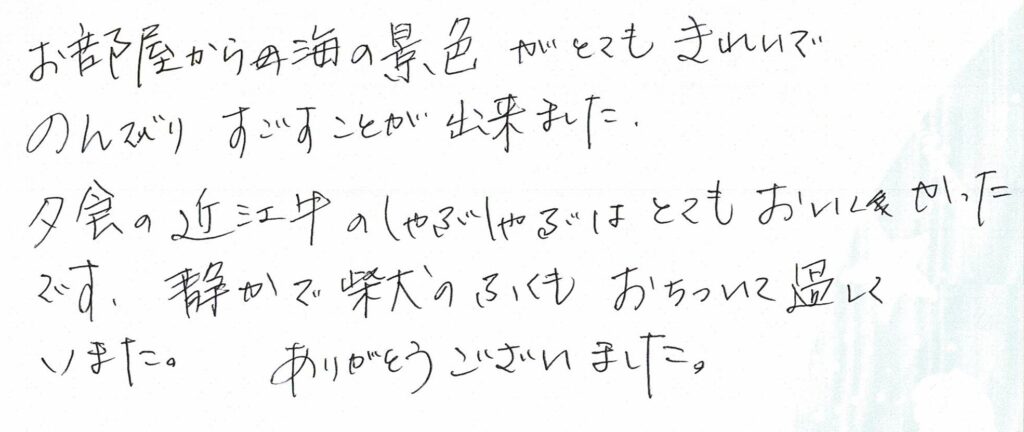 お部屋からの海の景色がとてもきれいで
のんびりすごすことが出来ました.
夕食の近江牛のしゃぶしゃぶはとてもおいしかった
です. 静かで柴犬のふくもおちついて過して
いました。 ありがとうございました。